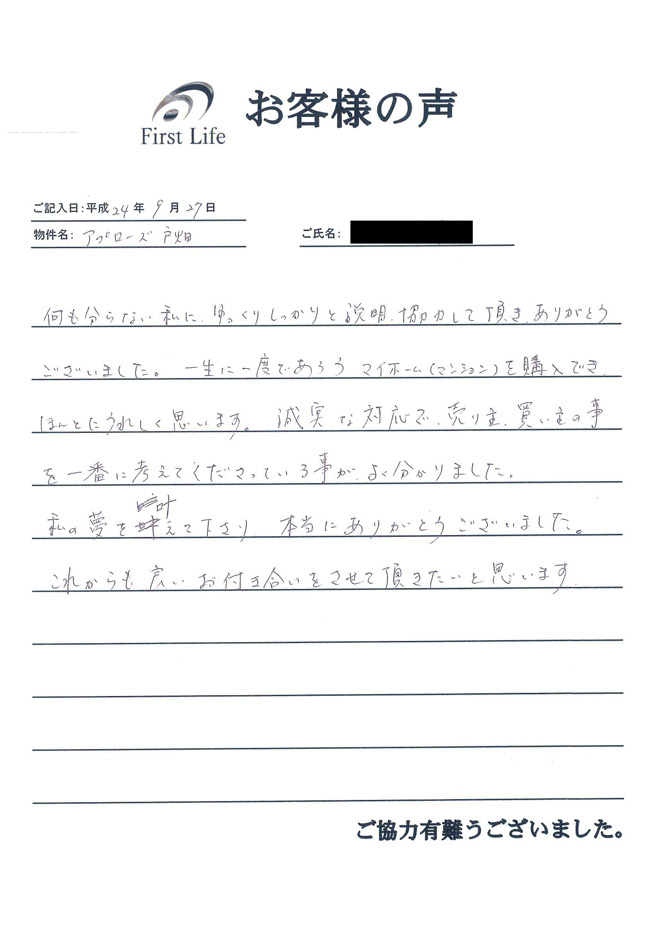 First Life
お客様の声
ご記入日：平成24年9月27日
物件名：アプローズ戸畑
ご氏名：
何も分らない私に、ゆっくりしっかりと説明、協力して頂き、ありがとう
ございました。一生に一度であろうマイホーム(マンション)を購入でき、
ほんとにうれしく思います。誠実な対応で、売り主、買い主の事
を一番に考えてくださっている事が、よく分かりました。
私の夢を叶えて下さり 本当にありがとうございました。
これからも良いお付き合いをさせて頂きたいと思います.
ご協力有難うございました。